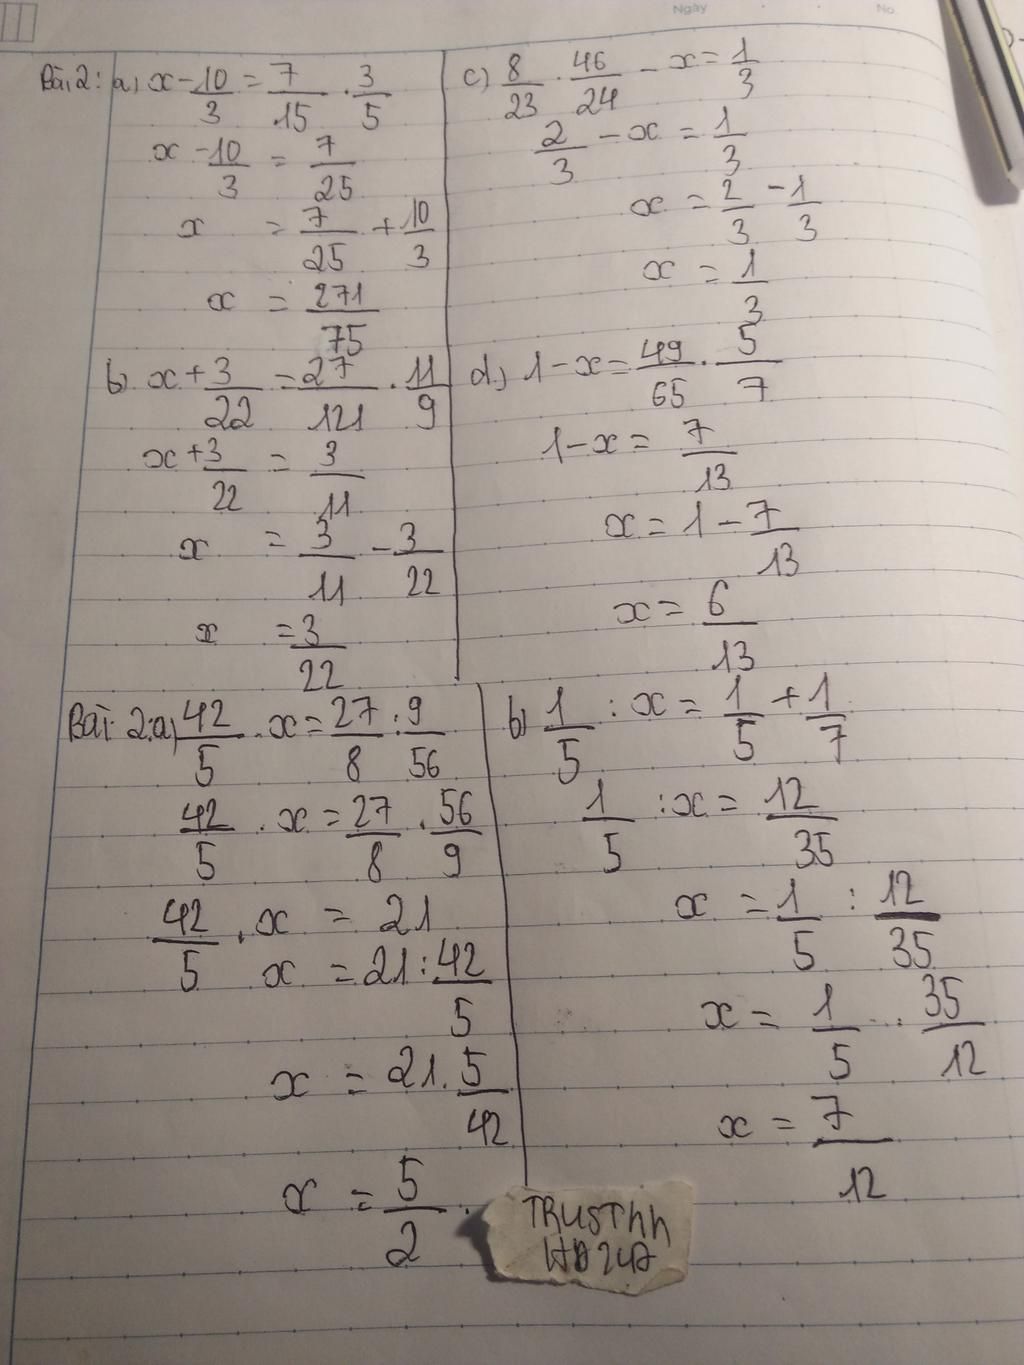 Ngày
No.
Bài 2: a) x - 10/3 = 7/15 . 3/5
x - 10/3 = 7/25
x = 7/25 + 10/3
x = 271/75
b) x + 3/22 = 27/121 . 11/9
x + 3/22 = 3/11
x = 3/11 - 3/22
x = 3/22
c) 8/23 . 46/24 - x = 1/3
2/3 - x = 1/3
x = 2/3 - 1/3
x = 1/3
d) 1 - x = 49/65 . 5/7
1 - x = 7/13
x = 1 - 7/13
x = 6/13
Bài 2: a) 42/5 . x = 27/8 : 9/56
42/5 . x = 27/8 . 56/9
42/5 . x = 21
x = 21 : 42/5
x = 21 . 5/42
x = 5/2
b) 1/5 : x = 1/5 + 1/7
1/5 : x = 12/35
x = 1/5 : 12/35
x = 1/5 . 35/12
x = 7/12
TRUSThh
HD247